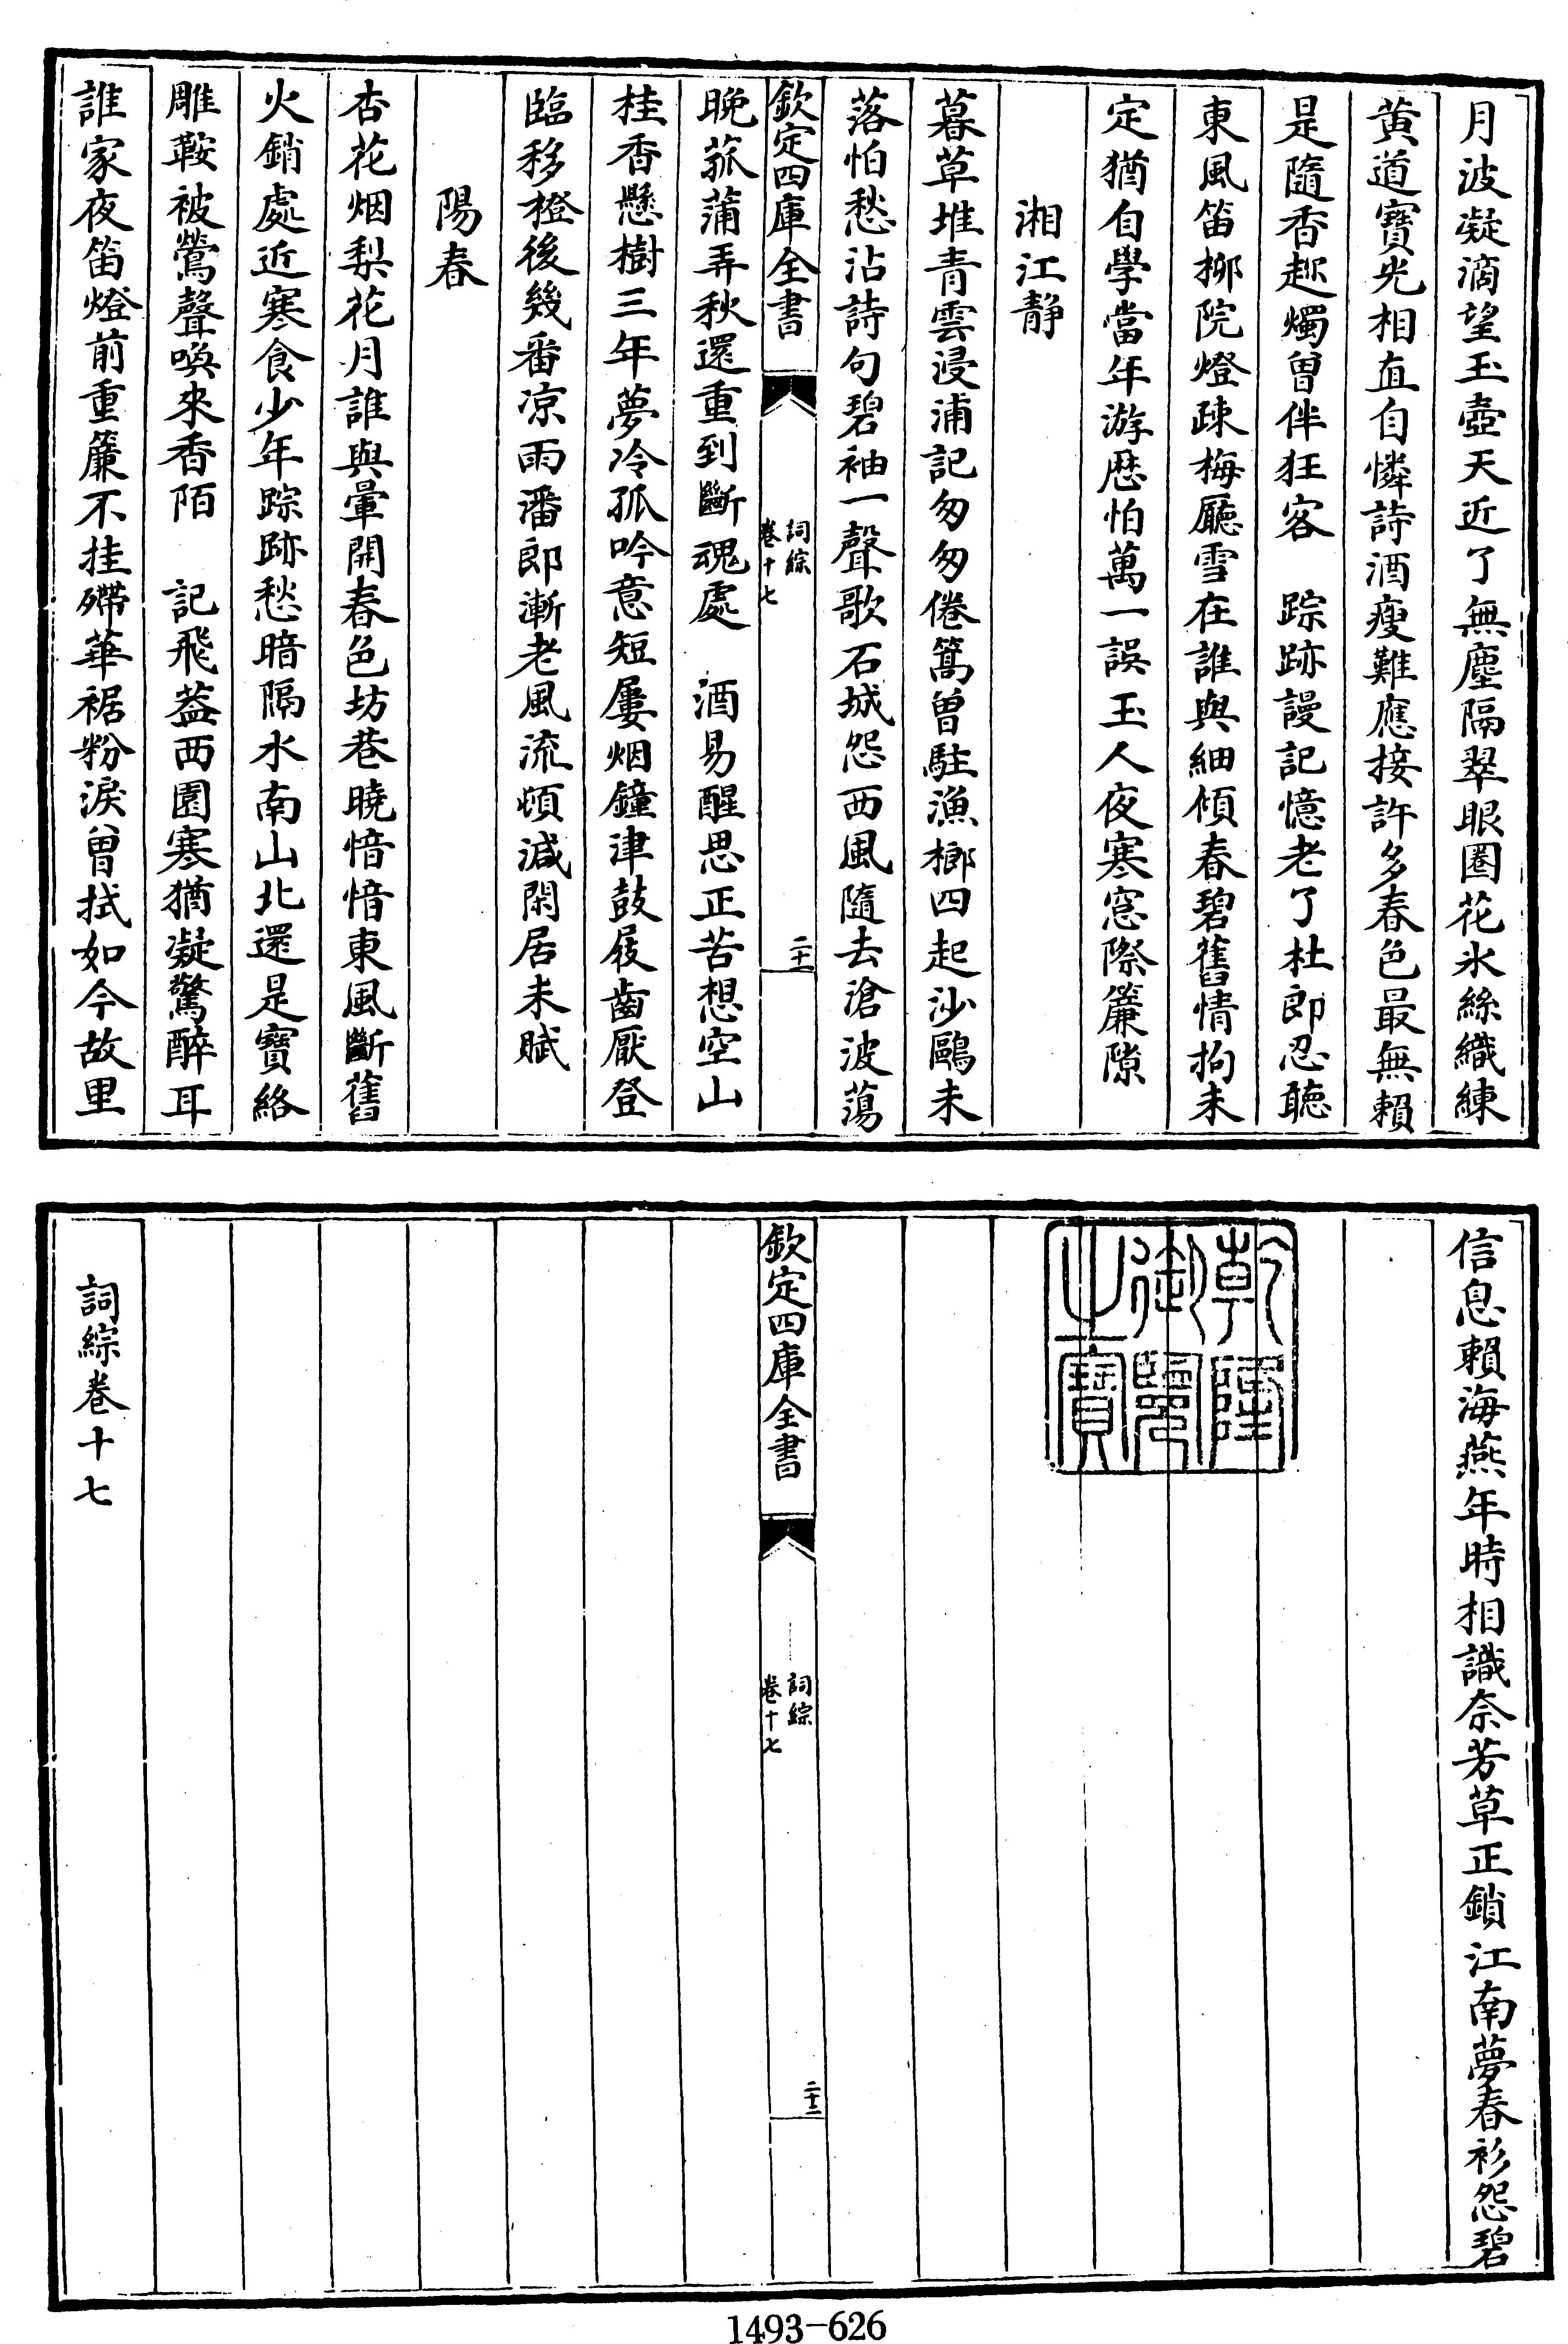 月波凝滴望玉壺天近了無塵隔翠眼圈花氷絲織練
黄道寳光相直自憐詩酒瘦難應接許多春色最無賴
是隨香趂燭曾伴狂客　踪跡謾記憶老了杜郎忍聽
東風笛柳院燈疎梅廳雪在誰與細傾春碧舊情拘未
定猶自學當年游歴怕萬一誤玉人夜寒窓際簾隙
湘江静
暮草堆青雲浸浦記匆匆倦篙曾駐漁榔四起沙鷗未
落怕愁沾詩句碧袖一聲歌石城怨西風隨去滄波蕩
欽定四庫全書
詞綜
卷十七
二十一
晚菰蒲弄秋還重到斷魂處　酒易醒思正苦想空山
桂香懸樹三年夢冷孤吟意短屢烟鐘津鼓屐齒厭登
臨移橙後幾番凉雨潘郎漸老風流頓減閑居未賦
陽春
杏花烟梨花月誰與暈開春色坊巷曉愔愔東風斷舊
火銷處近寒食少年踪跡愁暗隔水南山北還是寳絡
雕鞍被鶯聲喚來香陌　記飛葢西園寒猶凝驚醉耳
誰家夜笛燈前重簾不挂殢華裾粉淚曾拭如今故里
信息賴海燕年時相識奈芳草正鎖江南夢春衫怨碧
乾隆
御覽
之寳
欽定四庫全書
詞綜
卷十七
二十二
詞綜卷十七
1493-626